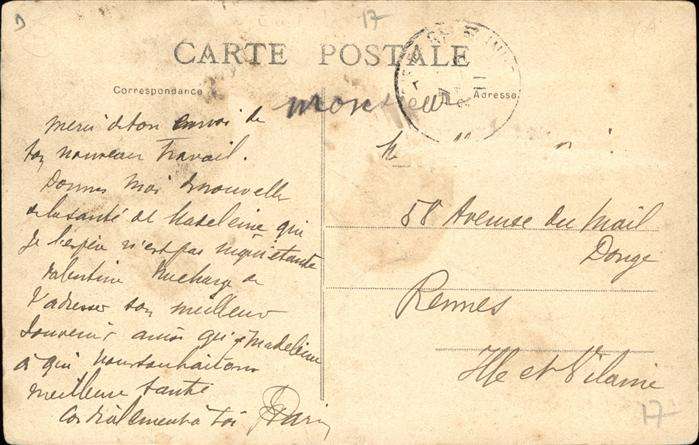 CARTE POSTALE
Correspondance
Adresse
17
Monsieur
merci de ton envoi de
ton nouveau travail.
Donnes moi de nouvelle
de la santé de Madeleine qui
je l'espère n'est pas inquiétante
Valentine me charge de
t'adresser son meilleur
souvenir ainsi qu'à Madeleine
à qui nous souhaitons
meilleure santé
Cordialement à toi
58 Avenue du Mail
Donge
Rennes
Ille et Vilaine
17